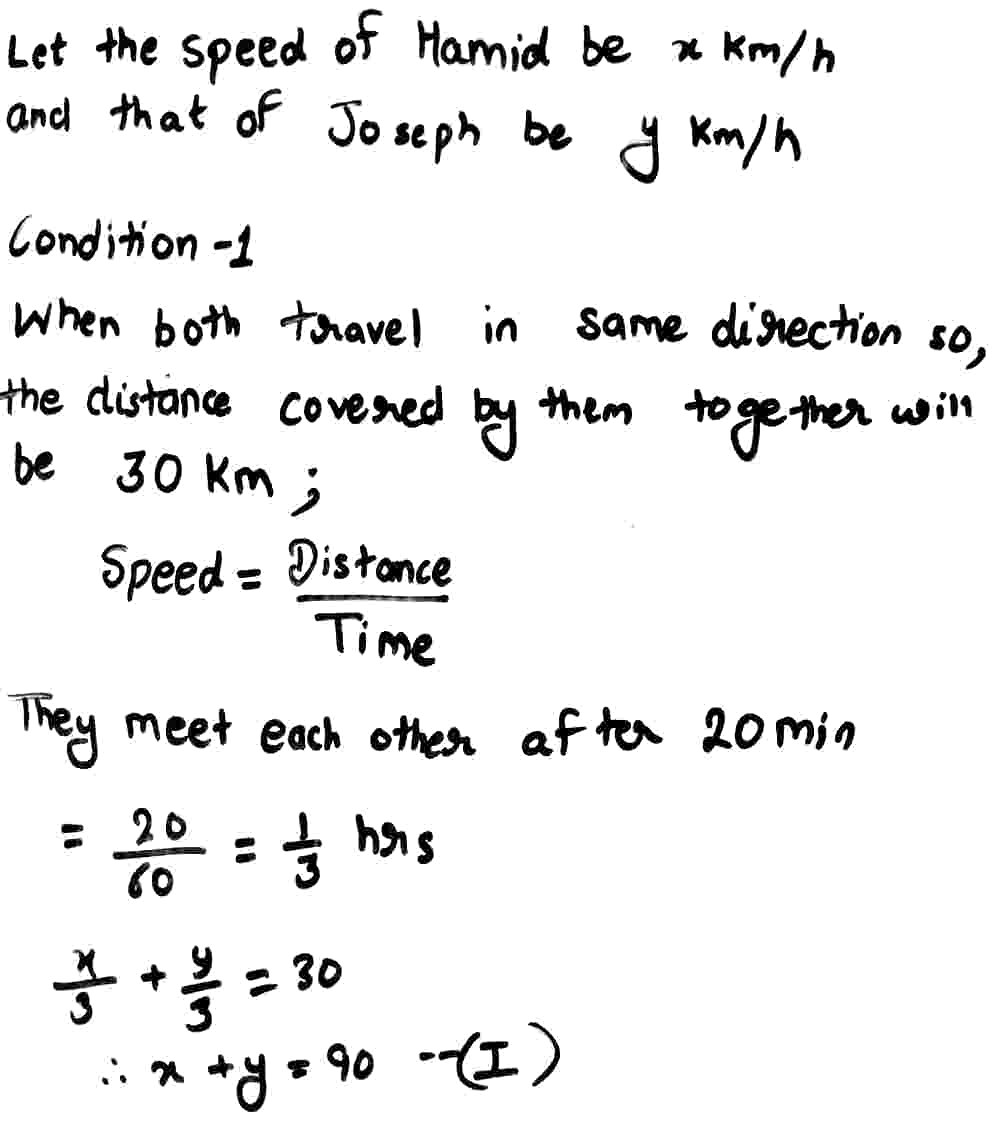 Let the speed of Hamid be x km/h
and that of Joseph be y km/h
Condition -1
When both travel in same direction so,
the distance covered by them together will
be 30 km ;
Speed = Distance / Time
They meet each other after 20 min
= 20/60 = 1/3 hrs
x/3 + y/3 = 30
∴ x + y = 90 --(I)